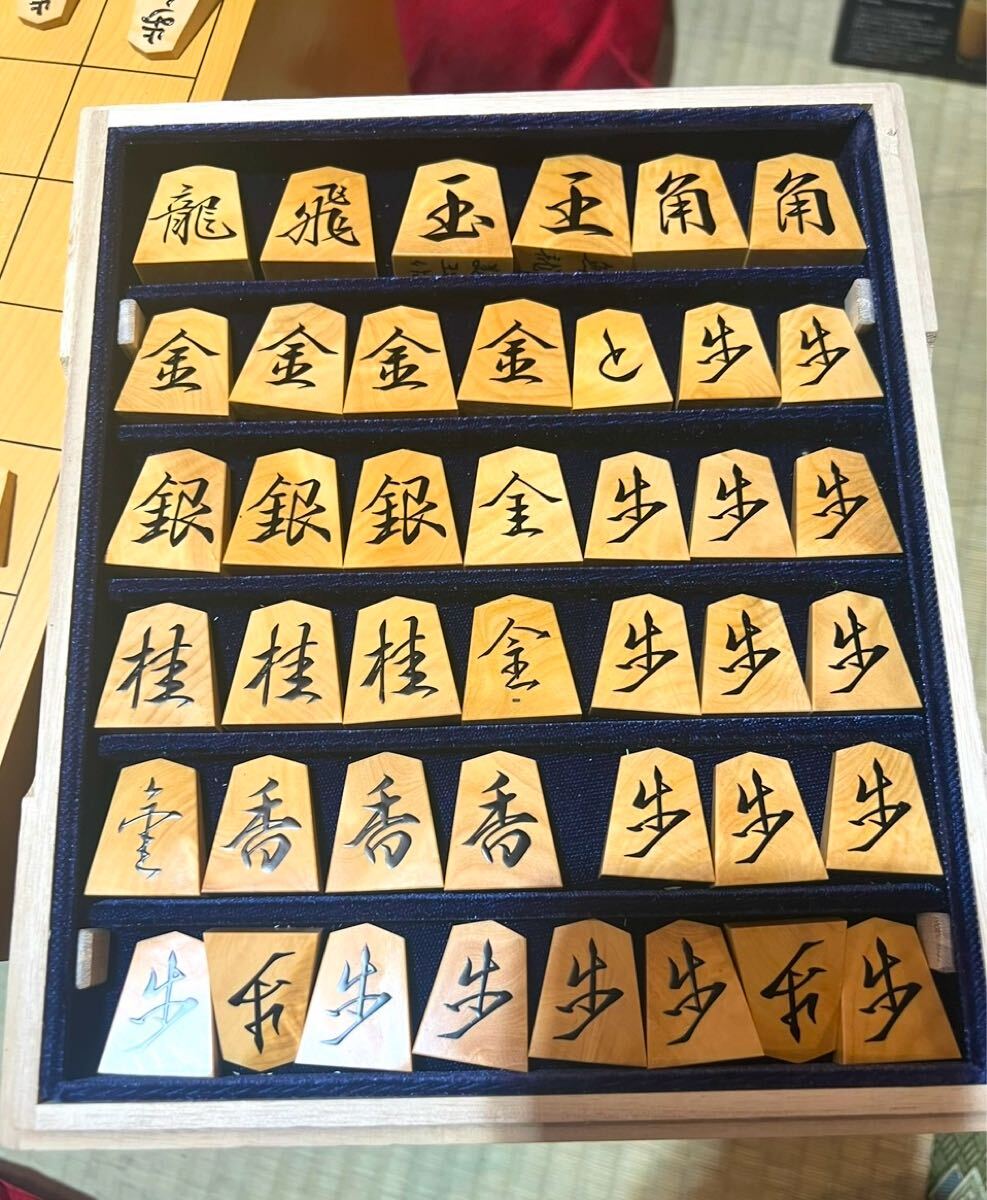 龍 飛 玉 王 角 角
金 金 金 金 と 歩 歩
銀 銀 銀 全 歩 歩 歩
桂 桂 桂 金 歩 歩 歩
香 香 香 歩 歩 歩
歩 歩 歩 歩 歩 歩 歩 歩